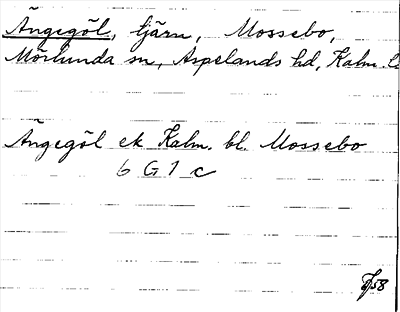 Ängegöl, tjärn, Mossebo,
Mörlunda sn, Aspelands hd, Kalm. l
Ängegöl ek Kalm. bl. Mossebo
6 G 1 c
/58